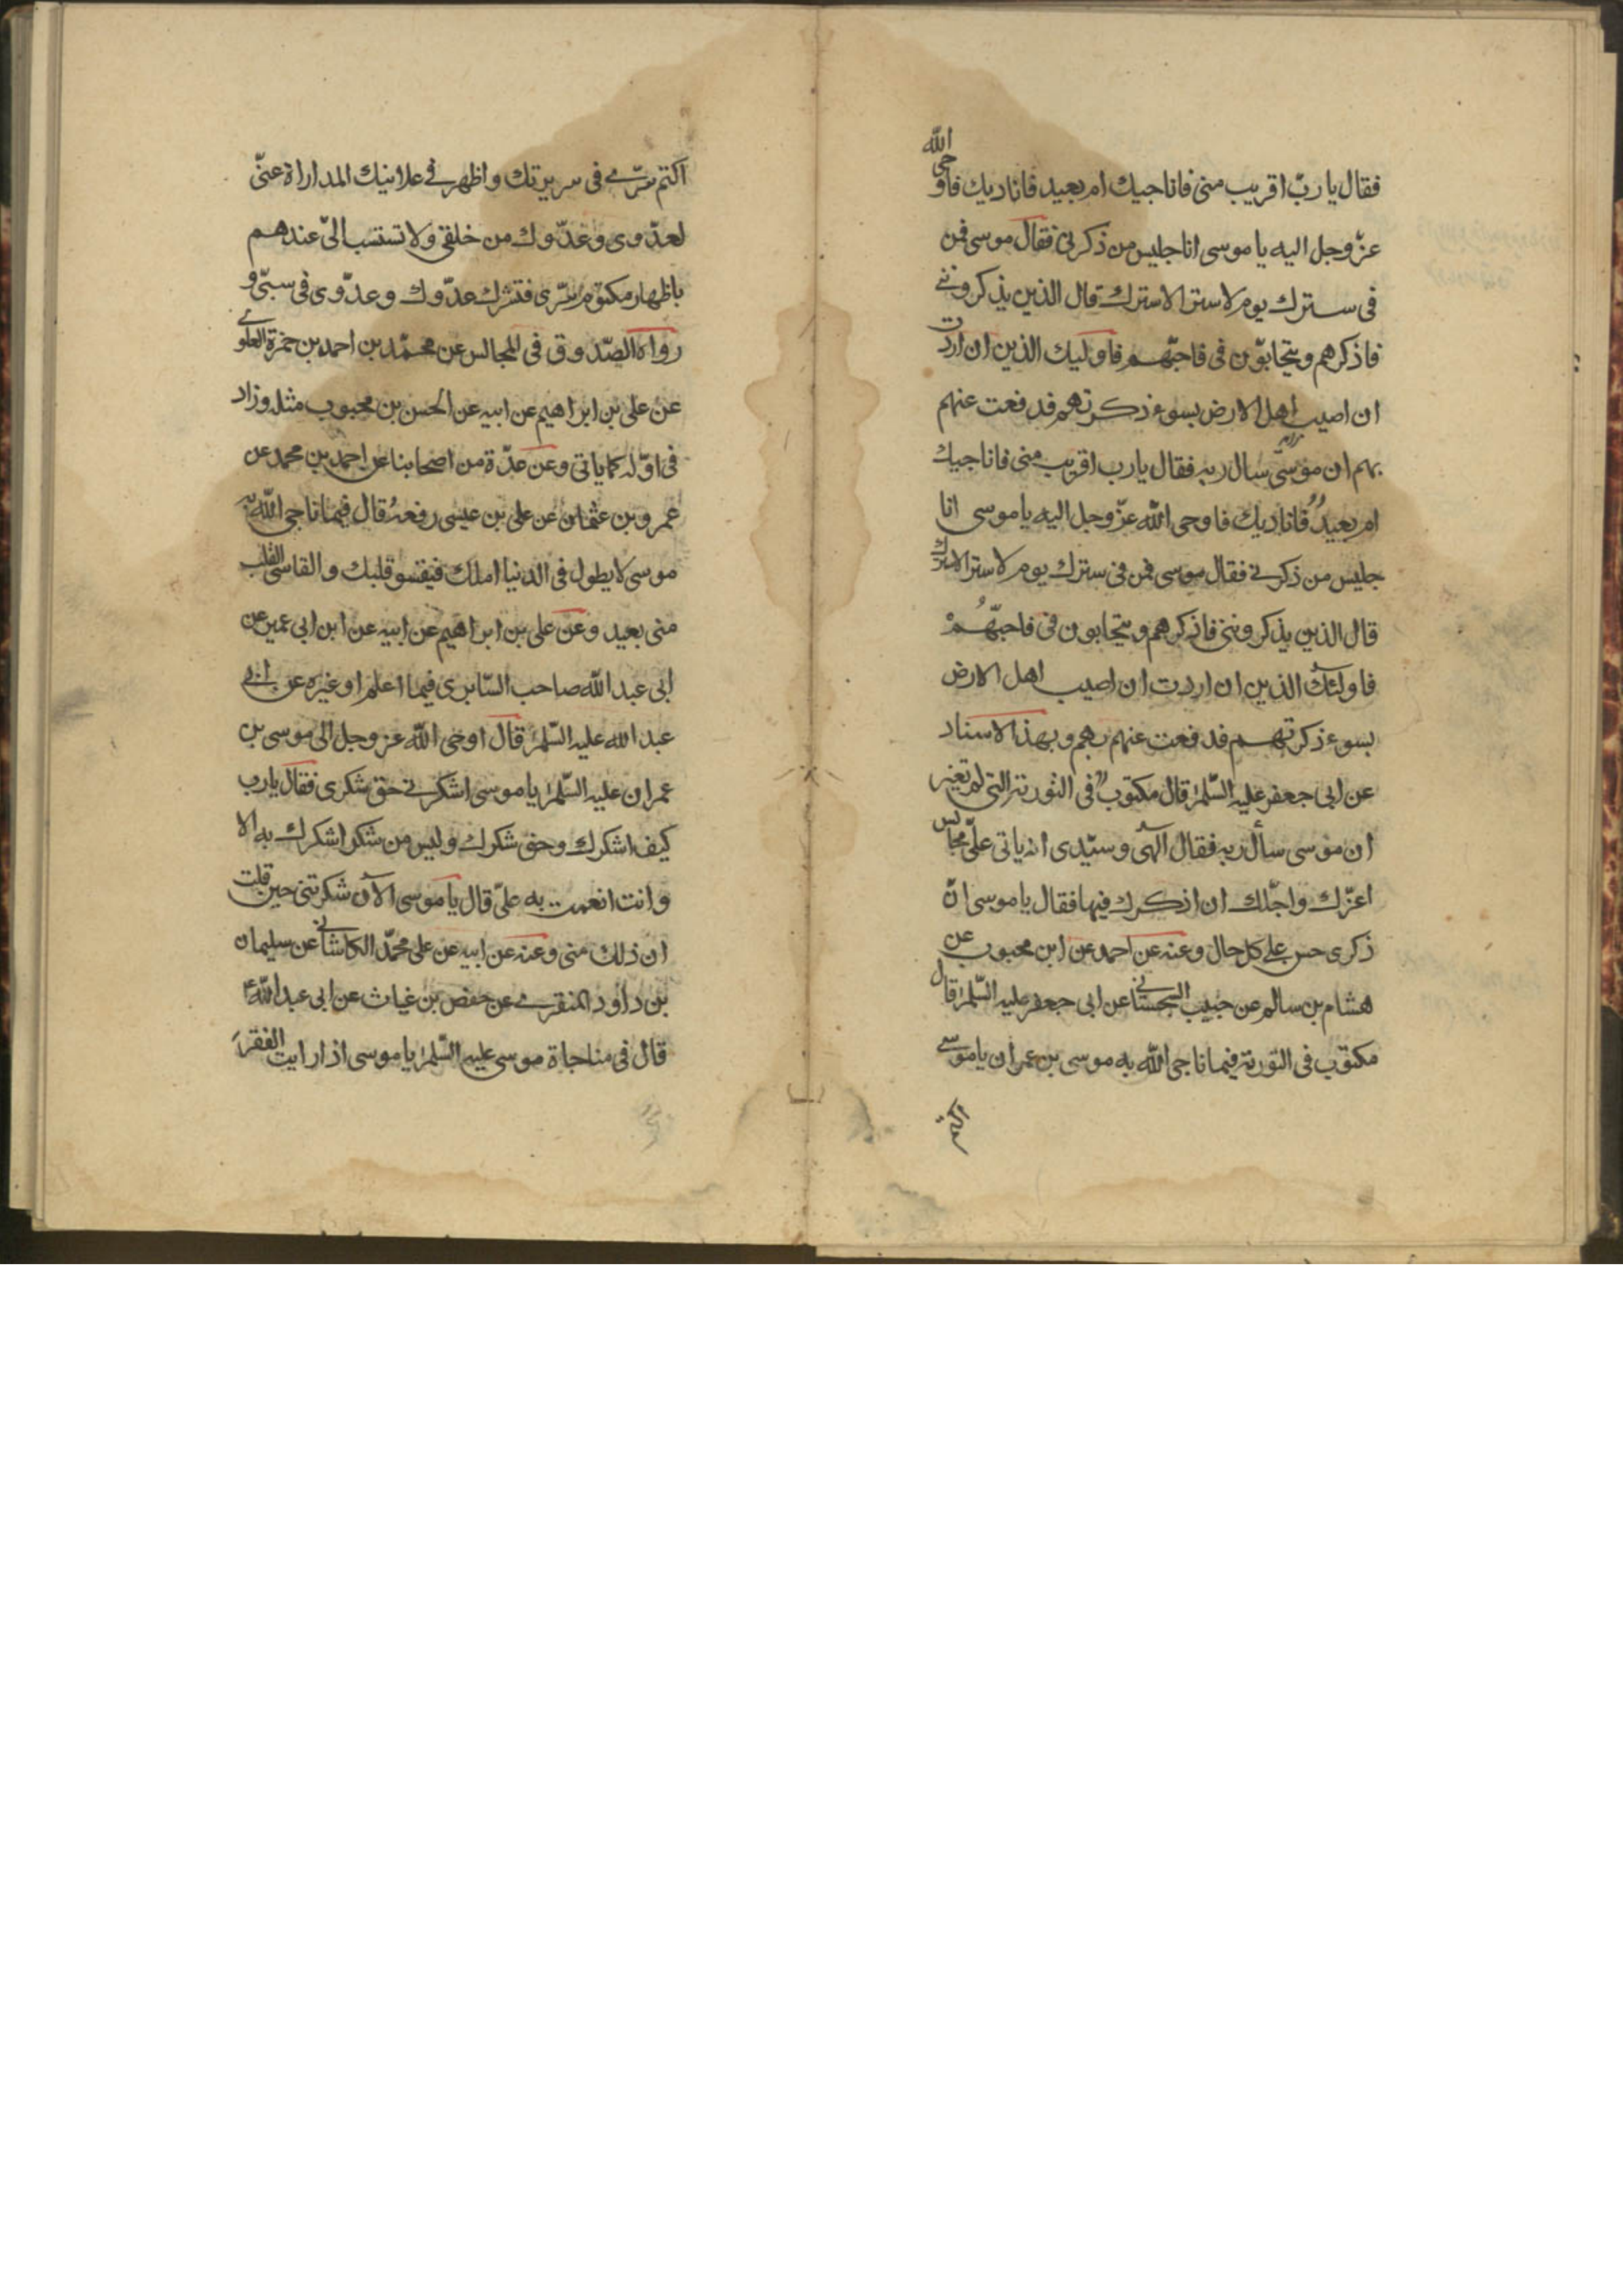 فقال يا ربّ اقريب منى فاناجيك ام بعيد فاناديك فاوحى الله
عزّ وجل اليه يا موسى انا جليس من ذكرنى فقال موسى فمن
فى سترك يوم لا ستر الا سترك قال الذين يذكروننى
فاذكرهم ويتحابّون فى فاحبّهم فاوليك الذين ان اردت
ان اصيب اهل الارض بسوء ذكرتهم فدفعت عنهم
بهم ان موسى سال ربه فقال يا رب اقريب منى فاناجيك
ام بعيدٌ فاناديك فاوحى الله عزّ وجل اليه يا موسى انا
جليس من ذكرنى فقال موسى فمن فى سترك يوم لا ستر الا سترك
قال الذين يذكروننى فاذكرهم ويتحابون فى فاحبّهُمْ
فاولئك الذين ان اردت ان اصيب اهل الارض
بسوء ذكرتهم فدفعت عنهم بهم وبهذا الاسناد
عن ابى جعفر عليه السّلم قال مكتوب فى التورية التى لم تغير
ان موسى سأل ربه فقال الهى وسيّدى انه ياتى علىّ مجالس
اعزّك واجّلك ان اذكرك فيها فقال يا موسى انّ
ذكرى حسن على كل حال وعنه عن احمد عن ابن محبوب عن
هشام بن سالم عن حبيب السجستانى عن ابى جعفر عليه السّلم قال
مكتوب فى التورية فيما ناجى الله به موسى بن عمران يا موسى
اكتم
اكتم سرّى فى سريرتك واظهر فى علانيتك المداراة عنّى
لعدّوى وعدّوك من خلقى ولا تستسب الىّ عندهم
باظهار مكتوم سرّى فتشرك عدّوك وعدّوى فى سبّى و
رواه الصّدوق فى المجالس عن محمّد بن احمد بن حمزة العلوى
عن على بن ابراهيم عن ابيه عن الحسن بن محبوب مثله وزاد
فى اوّله كما ياتى وعن عدّة من اصحابنا عن احمد بن محمد عن
عمرو بن عثمان عن على بن عيسى رفعهُ قال فيما ناجى الله به
موسى لا يطول فى الدنيا املك فيقسو قلبك والقاسى القلب
منى بعيد وعن على بن ابراهيم عن ابيه عن ابن ابى عمير عن
ابى عبد الله صاحب السّابرى فيما اعلم او غيره عن ابى
عبد الله عليه السّلم قال اوحى الله عز وجل الى موسى بن
عمران عليه السّلم يا موسى اشكرنى حق شكرى فقال يا رب
كيف اشكرك وحق شكرك وليس من شكر اشكرك به الا
وانت انعمت به علىّ قال يا موسى الآن شكرتنى حين قلت
ان ذلك منى وعنه عن ابيه عن على محمّد الكاشانى عن سليمان
بن داود المنقرى عن حفص بن غياث عن ابى عبد الله ع
قال فى مناجاة موسى عليه السّلم يا موسى اذا رايت الفقر